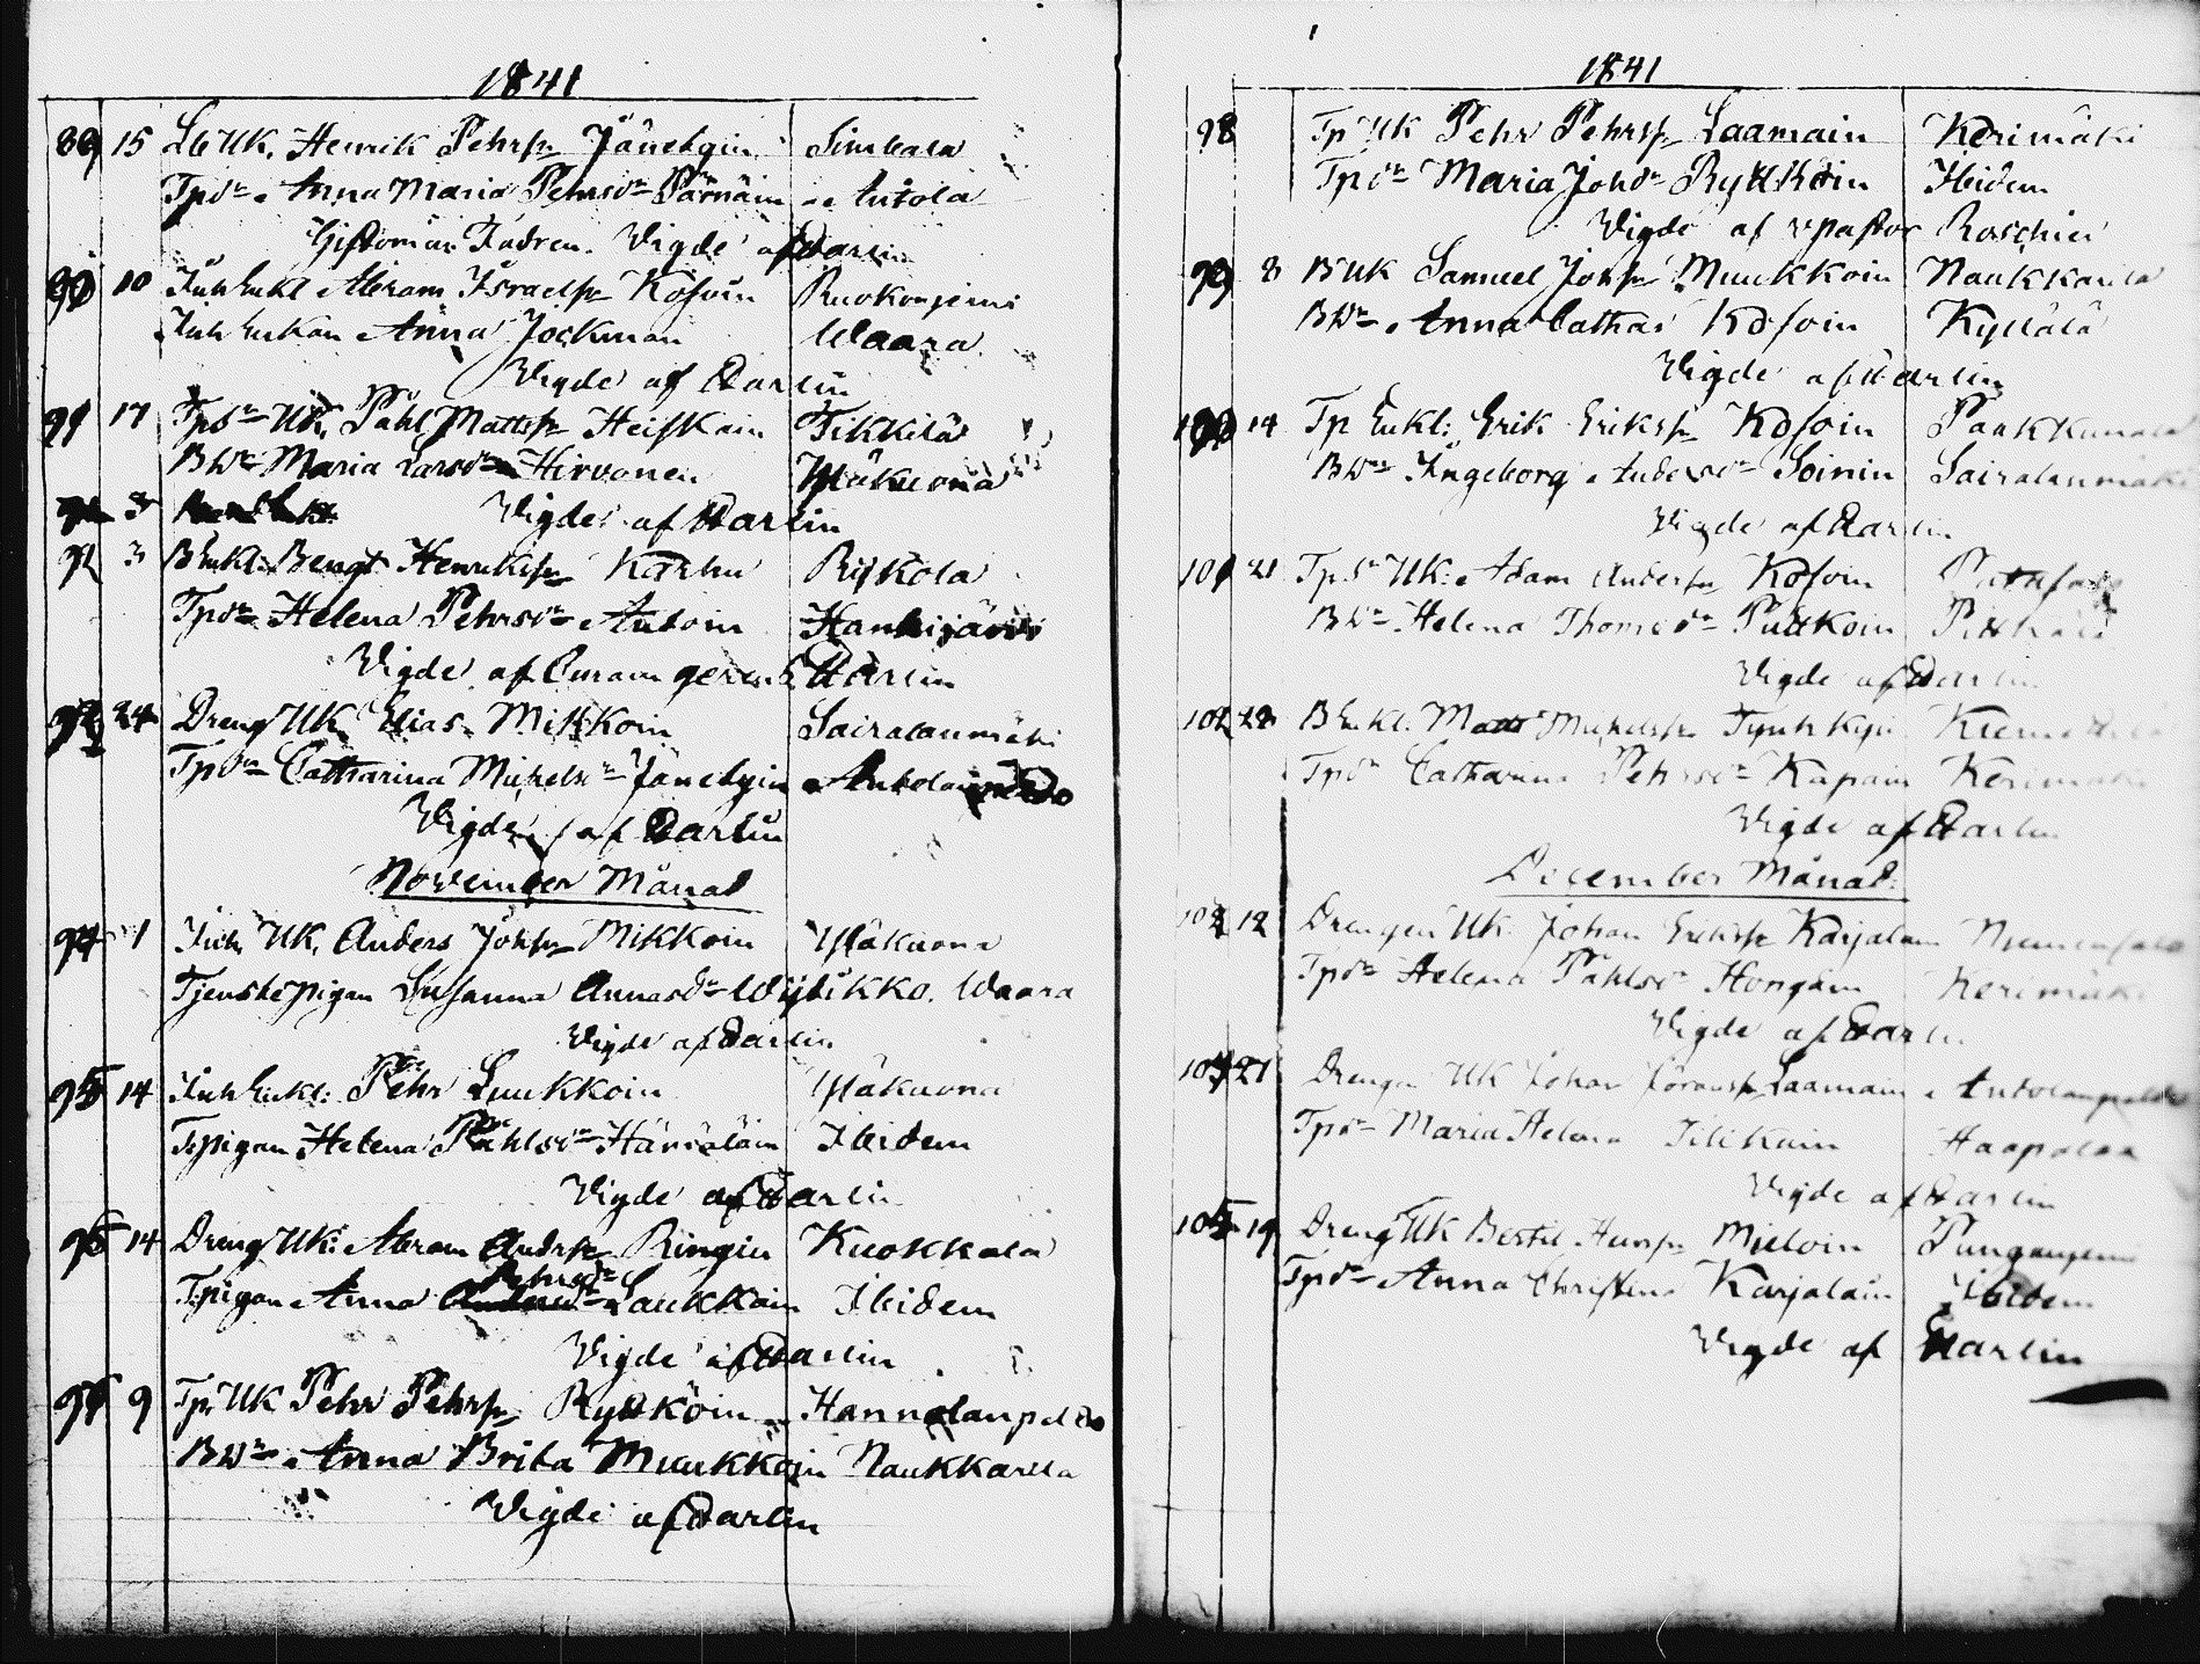 1841
89 15 Lb UK. Henrik Pehrsn Jänekyin Simbala
Tpdr Anna Maria Pehrsdr Pärnäin Antola
Giftoman Fadren. Vigde af Carlin
90 10 Inh Enkl Abram Israelsn Kosoin Ruokonjemi
Inh Enkan Anna Jockman Waara
Vigde af Carlin
91 17 Tpsn UK. Påhl Mattsn Heiskain Tikkilä
BDr Maria Larsdr Hirvonen Yläkuona
3 Vigde af Carlin
92 3 BEnkl. Bengt Henriksn Karhu Ryskola
Tpdr Helena Pehrsdr Autoin Hanhijärvi
Vigde af Carlin
93 24 Dreng UK Elias Mikkoin Sairalanmäki
Tpdr Catharina Michelsdr Jänekyin
Vigde af Carlin
November Månad
94 1 Inh UK. Anders Johsn Mikkoin Yläkuona
Tjenstepigan Susanna Annasdr Waara
Vigde af Carlin
95 14 Inh Enkl: Pehr Luukkoin Yläkuona
Tpigan Helena Påhlsdr Härkäläin Ibidem
Vigde af Carlin
96 14 Dreng UK: Abram Andrsn Ringin Kuokkala
Pehrsdr
Tpigan Anna Laukkain Ibidem
Vigde af Carlin
97 9 Tp UK Pehr Pehrsn Ryttköin Hannolanpelto
BDr Anna Brita Muukkoin Naukkarila
Vigde af Carlin
1841
98 Tp UK Pehr Pehrsn Laamain Kerimäki
Tpdr Maria Johdr Ryttköin Ibidem
Vigde af vpastor Roschier
99 8 B UK Samuel Johsn Muukkoin Naukkarila
BDr Anna Cathar Kosoin Kyllälä
Vigde af Carlin
100 14 Tp Enkl: Erik Eriksn Kosoin Paakkunala
BDr Ingeborg Andersdr Soinin Sairalanmäki
Vigde af Carlin
101 21 Tpsn UK: Adam Andersn Kosoin
BDr Helena Thomasdr Puttkoin
Vigde af Carlin
102 28 BEnkl. Matts Michelsn Tynkkyn
Tpdr Catharina Pehrsdr Kapain Kerimäki
Vigde af Carlin
December Månad.
103 12 Drengen UK Johan Eriksn Karjalain Niemenfalo
Tpdr Helena Påhlsdr Hongain Kerimäki
Vigde af Carlin
104 21 Drengen UK Johan Jöransn Laamain Antolanpelto
Tpdr Maria Helena Tilikain Haapalax
Vigde af Carlin
105 19 Dreng UK Bertil Hensn Mieloin
Tpdr Anna Christina Karjalain Ibidem
Vigde af Carlin